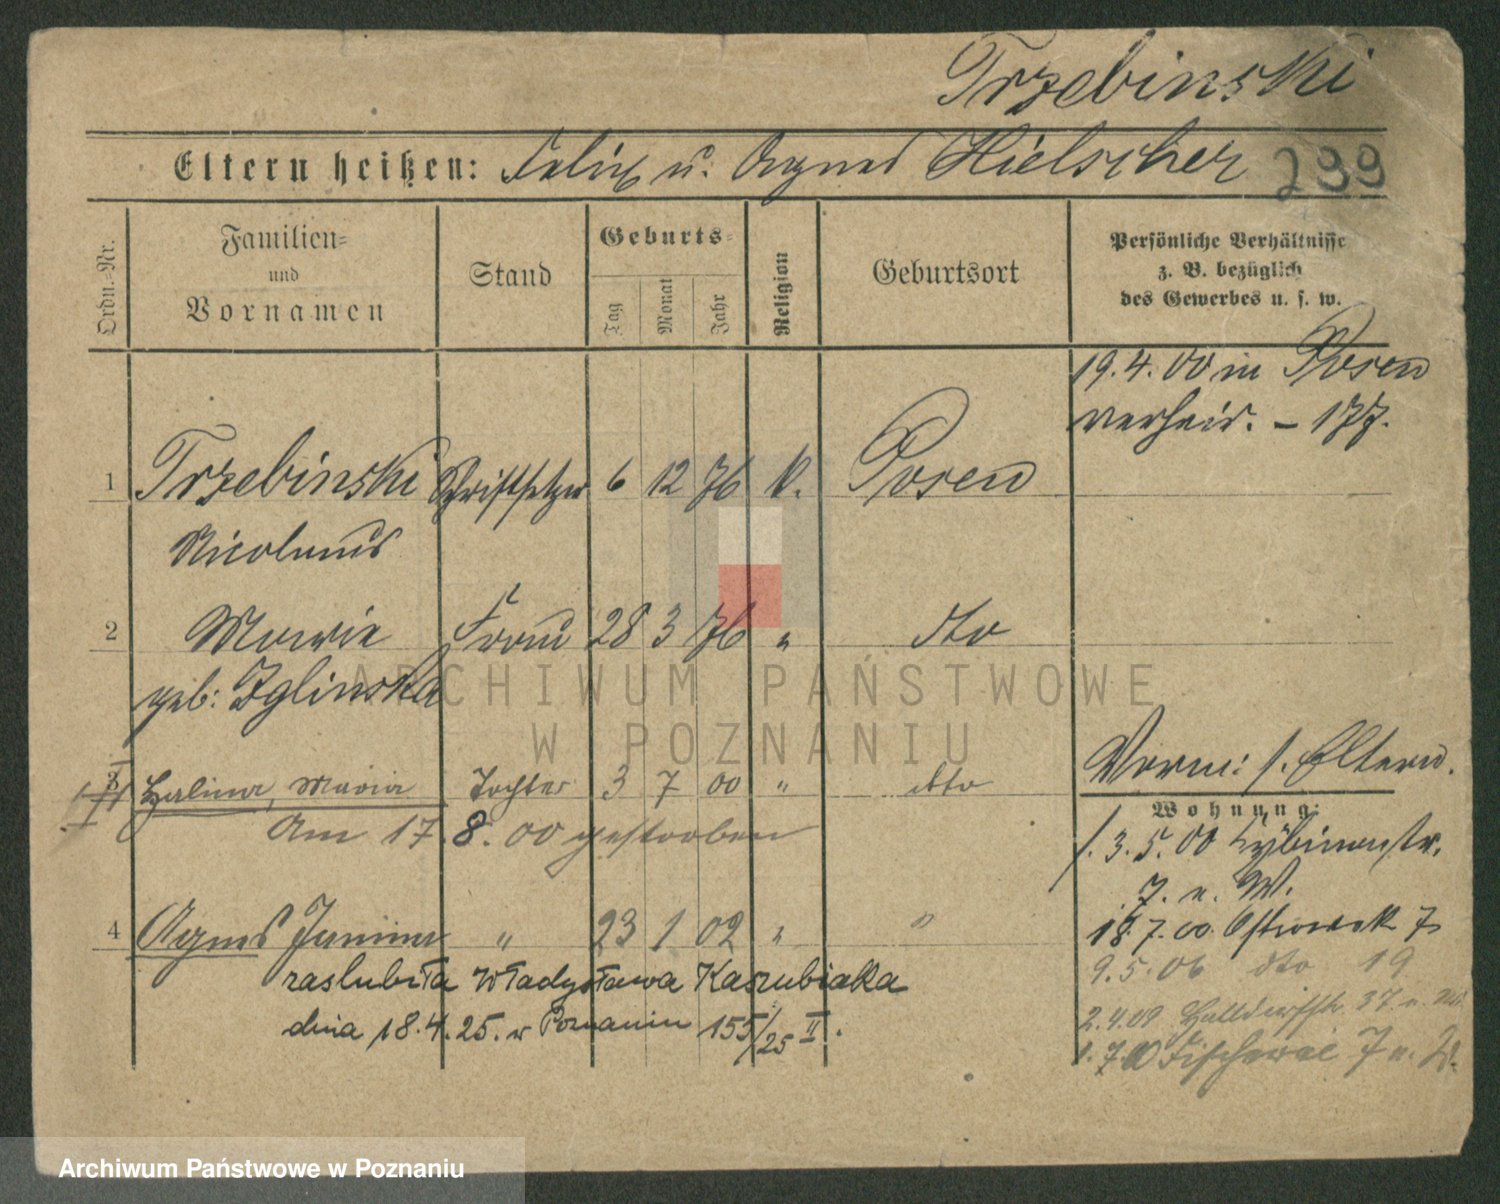 Trzebinski
Eltern heißen: Felix u. Agnes Hielscher 299
Ordn.-Nr. Familien- und Vornamen Stand Geburts- Tag Monat Jahr Religion Geburtsort Persönliche Verhältnisse z. B. bezüglich des Gewerbes u. s. w.
19.4.00 in Posen
verheir. – 177.
1 Trzebinski Schriftsetzer 6 12 76 k. Posen
Nicolaus
2 Marie Frau 28 3 76 " dto
geb: Iglinska
Vorm: s. Eltern.
3 Halina, Maria Tochter 3 7 00 " dto
Wohnung:
Am 17. 8. 00 gestorben
3.5.00 Lybinastr.
7. n. W.
4 Agnes Janina " 23 1 02 " "
18.7.00. Ostrowek 7
zaslubiła Władysława Kaszubiaka
9.5.06 dto 19
dnia 18.4.25. w Poznaniu 155/25 II.
2.4.09 37 n.
1.7.10 Fischerei 7 n. W.
ARCHIWUM PAŃSTWOWE
W POZNANIU
Archiwum Państwowe w Poznaniu